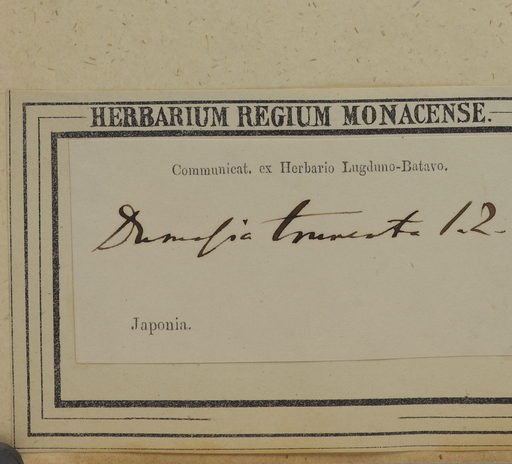 HERBARIUM REGIUM MONACENSE.
Communicat. ex Herbario Lugduno-Batavo.
Dumasia truncata 1.2.
Japonia.